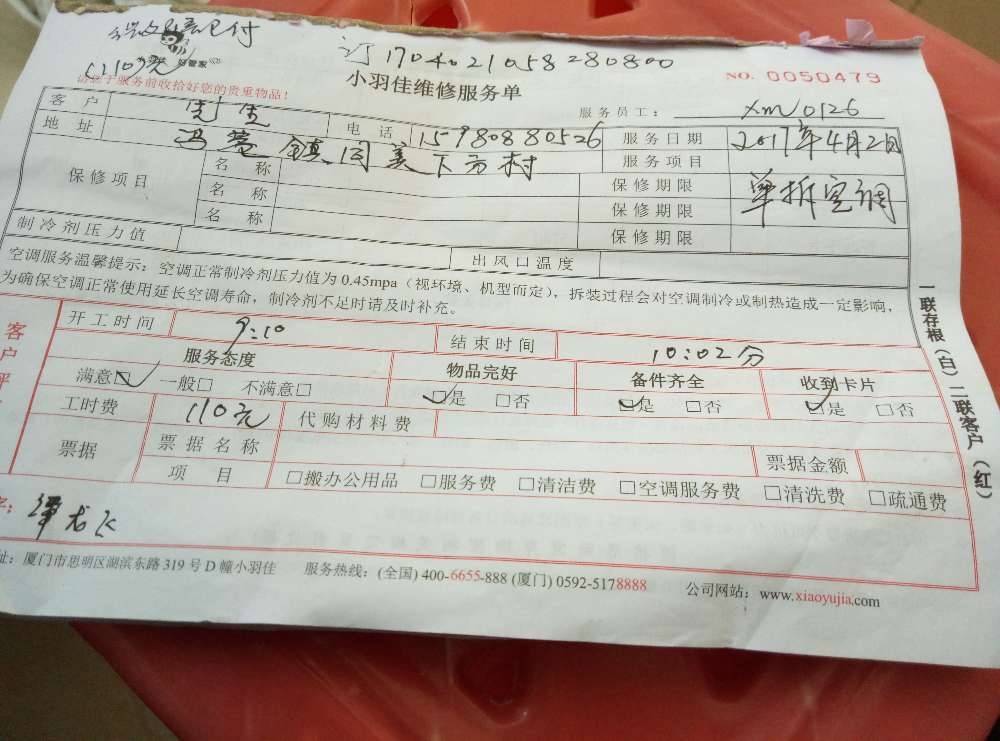 110元 好管家
订 170402105828 0800
请您于服务前收拾好您的贵重物品！
小羽佳维修服务单
NO. 0050479
服务员工： xm0126
客户 先生 电话 15980880526 服务日期 2017年4月2日
地址 镇 下方村 服务项目 单拆空调
保修项目 名称 保修期限
名称 保修期限
名称 保修期限
制冷剂压力值 出风口温度
空调服务温馨提示：空调正常制冷剂压力值为 0.45mpa（视环境、机型而定），拆装过程会对空调制冷或制热造成一定影响，
为确保空调正常使用延长空调寿命，制冷剂不足时请及时补充。
一联存根（白）二联客户（红）
客户评
开工时间 9:10 结束时间 10:02分
服务态度 物品完好 备件齐全 收到卡片
满意☑ 一般□ 不满意□ ☑是 □否 ☑是 □否 ☑是 □否
工时费 110元 代购材料费
票据 票据名称 票据金额
项目 □搬办公用品 □服务费 □清洁费 □空调服务费 □清洗费 □疏通费
字：
址：厦门市思明区湖滨东路 319 号 D 幢小羽佳 服务热线：(全国) 400-6655-888 (厦门) 0592-5178888 公司网站：www.xiaoyujia.com